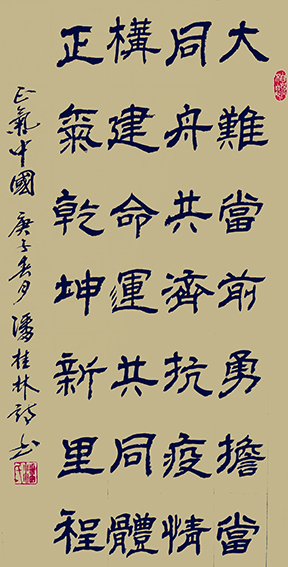 大難當前勇擔當
同舟共濟抗疫情
構建命運共同體
正氣乾坤新里程
正氣中國 庚子春月 潘桂林 詩書